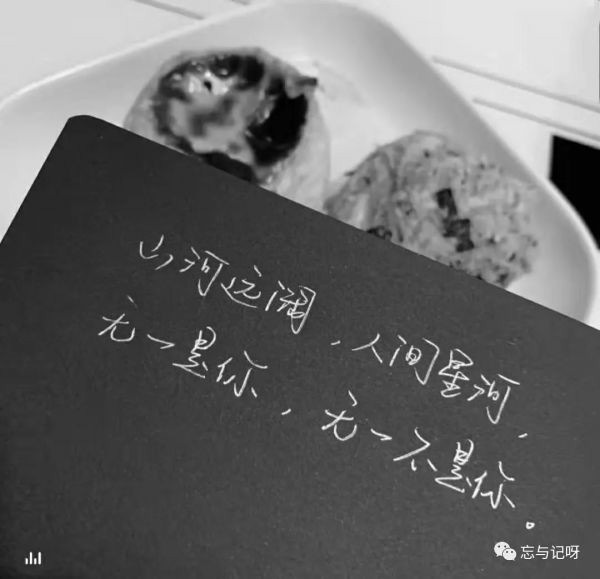 山河远阔，人间星河，
无一是你，无一不是你。
忘与记呀